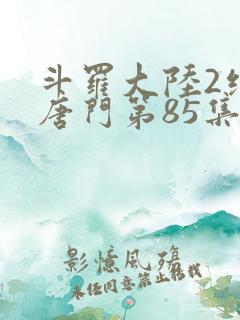 斗羅大陸2
唐門第85集
影憶風殤
未經同意禁止轉載